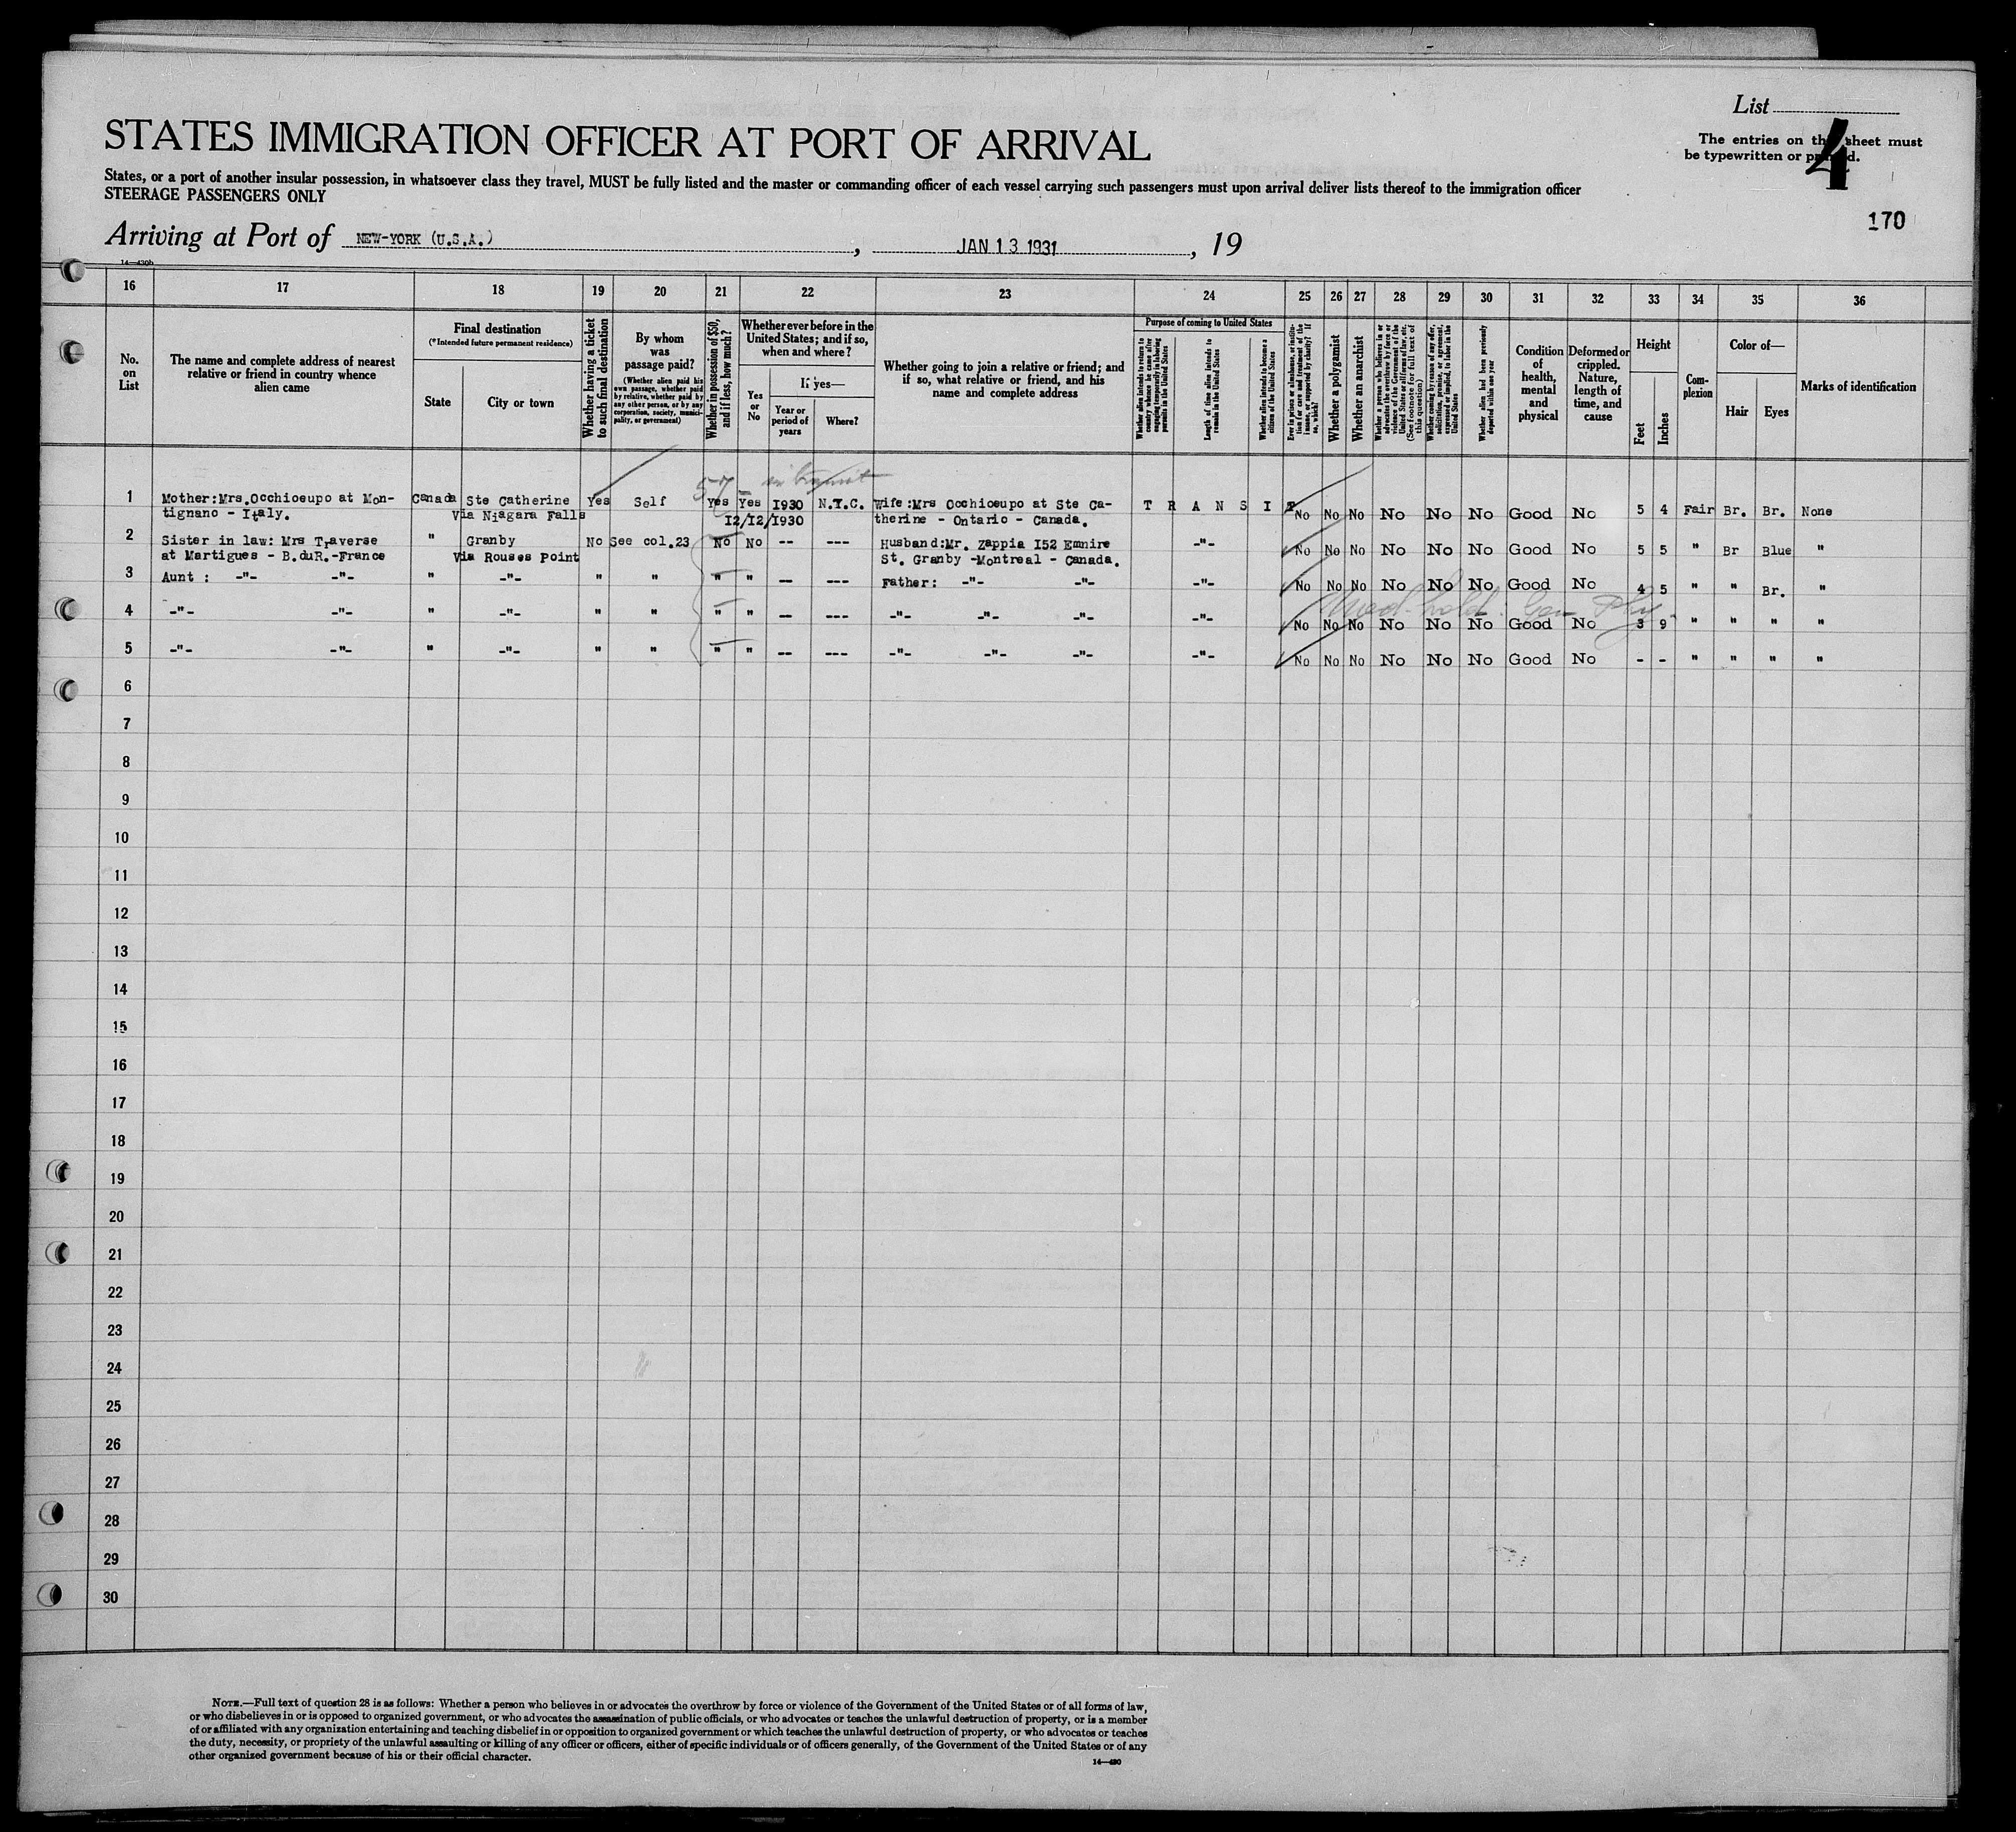 List
4
STATES IMMIGRATION OFFICER AT PORT OF ARRIVAL
The entries on this sheet must
be typewritten or printed.
States, or a port of another insular possession, in whatsoever class they travel, MUST be fully listed and the master or commanding officer of each vessel carrying such passengers must upon arrival deliver lists thereof to the immigration officer
STEERAGE PASSENGERS ONLY
170
Arriving at Port of NEW-YORK (U.S.A.), JAN 13 1931, 19
14—430b
16 17 18 19 20 21 22 23 24 25 26 27 28 29 30 31 32 33 34 35 36
No. on List
The name and complete address of nearest relative or friend in country whence alien came
Final destination
(*Intended future permanent residence)
State
City or town
Whether having a ticket to such final destination
By whom was passage paid?
(Whether alien paid his own passage, whether paid by relative, whether paid by any other person, or by any corporation, society, municipality, or government)
Whether in possession of $50, and if less, how much?
Whether ever before in the United States; and if so, when and where?
Yes or No
If yes—
Year or period of years
Where?
Whether going to join a relative or friend; and if so, what relative or friend, and his name and complete address
Purpose of coming to United States
Whether alien intends to return to country whence he came after engaging temporarily in laboring pursuits in the United States
Length of time alien intends to remain in the United States
Whether alien intends to become a citizen of the United States
Ever in prison or almshouse, or institution for care and treatment of the insane, or supported by charity? If so, which?
Whether a polygamist
Whether an anarchist
Whether a person who believes in or advocates the overthrow by force or violence of the Government of the United States or all forms of law, etc. (See footnote for full text of this question)
Whether coming by reason of any offer, solicitation, promise, or agreement, expressed or implied, to labor in the United States
Whether alien had been previously deported within one year
Condition of health, mental and physical
Deformed or crippled. Nature, length of time, and cause
Height
Feet
Inches
Com-plexion
Color of—
Hair
Eyes
Marks of identification
57 - in transit
1 Mother:Mrs.Occhioeupo at Mon- Canada Ste Catherine Yes Self Yes Yes I930 N.Y.C. Wife:Mrs Occhioeupo at Ste Ca- T R A N S I T No No No No No No Good No 5 4 Fair Br. Br. None
tignano - Italy. Via Niagara Falls I2/I2/I930 therine - Ontario - Canada.
2 Sister in law: Mrs Traverse " Granby No See col.23 No No -- --- Husband:Mr. Zappia I52 Emnire -"- No No No No No No Good No 5 5 " Br Blue "
at Martigues - B.duR.-France Via Rouses Point St. Granby -Montreal - Canada.
3 Aunt : -"- -"- " -"- " " " " -- --- Father: -"- -"- -"- No No No No No No Good No 4 5 " " Br. "
Med. hold:
4 -"- -"- " -"- " " " " -- --- -"- -"- -"- -"- No No No No No No Good No 3 9 " " " "
5 -"- -"- " -"- " " " " -- --- -"- -"- -"- -"- No No No No No No Good No - - " " " "
6
7
8
9
10
11
12
13
14
15
16
17
18
19
20
21
22
23
24
25
26
27
28
29
30
NOTE.—Full text of question 28 is as follows: Whether a person who believes in or advocates the overthrow by force or violence of the Government of the United States or of all forms of law,
or who disbelieves in or is opposed to organized government, or who advocates the assassination of public officials, or who advocates or teaches the unlawful destruction of property, or is a member
of or affiliated with any organization entertaining and teaching disbelief in or opposition to organized government or which teaches the unlawful destruction of property, or who advocates or teaches
the duty, necessity, or propriety of the unlawful assaulting or killing of any officer or officers, either of specific individuals or of officers generally, of the Government of the United States or of any
other organized government because of his or their official character.
14—430